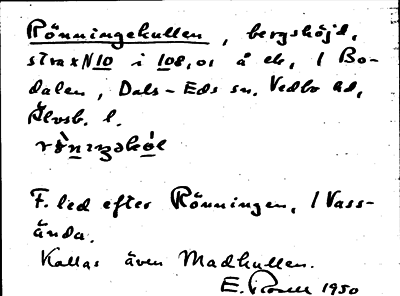 Rönningekullen, bergshöjd,
strax N 10 i 108,01 å ek, 1 Bo-
dalen, Dals-Eds sn. Vedbo hd,
Älvsb. l.
F. led efter Rönningen, 1 Vass-
ända.
Kallas även Madkullen.
E. 1950